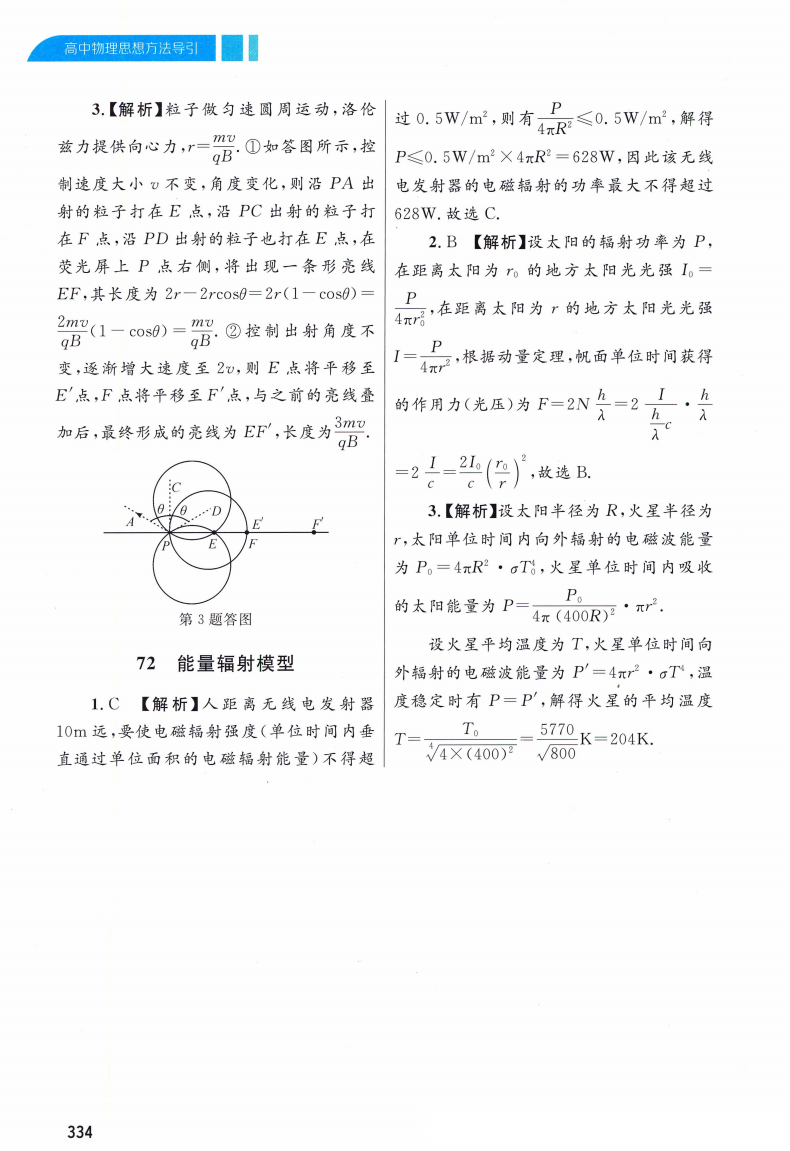 高中物理思想方法导引
3.【解析】粒子做匀速圆周运动,洛伦
兹力提供向心力,r=mv/qB.①如答图所示,控
制速度大小 v 不变,角度变化,则沿 PA 出
射的粒子打在 E 点,沿 PC 出射的粒子打
在 F 点,沿 PD 出射的粒子也打在 E 点,在
荧光屏上 P 点右侧,将出现一条形亮线
EF,其长度为 2r-2rcosθ=2r(1-cosθ)=
2mv/qB(1-cosθ)=mv/qB.②控制出射角度不
变,逐渐增大速度至 2v,则 E 点将平移至
E′点,F 点将平移至 F′点,与之前的亮线叠
加后,最终形成的亮线为 EF′,长度为3mv/qB.
C
θ θ
A D
E′ F′
P E F
第 3 题答图
72 能量辐射模型
1.C 【解析】人距离无线电发射器
10m 远,要使电磁辐射强度(单位时间内垂
直通过单位面积的电磁辐射能量)不得超
过 0.5W/m²,则有P/4πR²≤0.5W/m²,解得
P≤0.5W/m²×4πR²=628W,因此该无线
电发射器的电磁辐射的功率最大不得超过
628W.故选 C.
2.B 【解析】设太阳的辐射功率为 P,
在距离太阳为 r₀ 的地方太阳光光强 I₀=
P/4πr₀²,在距离太阳为 r 的地方太阳光光强
I=P/4πr²,根据动量定理,帆面单位时间获得
的作用力(光压)为 F=2N h/λ=2 I/(h/λ c)·h/λ
=2 I/c=2I₀/c(r₀/r)²,故选 B.
3.【解析】设太阳半径为 R,火星半径为
r,太阳单位时间内向外辐射的电磁波能量
为 P₀=4πR²·σT₀⁴,火星单位时间内吸收
的太阳能量为 P=P₀/4π(400R)²·πr².
设火星平均温度为 T,火星单位时间向
外辐射的电磁波能量为 P′=4πr²·σT⁴,温
度稳定时有 P=P′,解得火星的平均温度
T=T₀/⁴√4×(400)²=5770/√800K=204K.
334